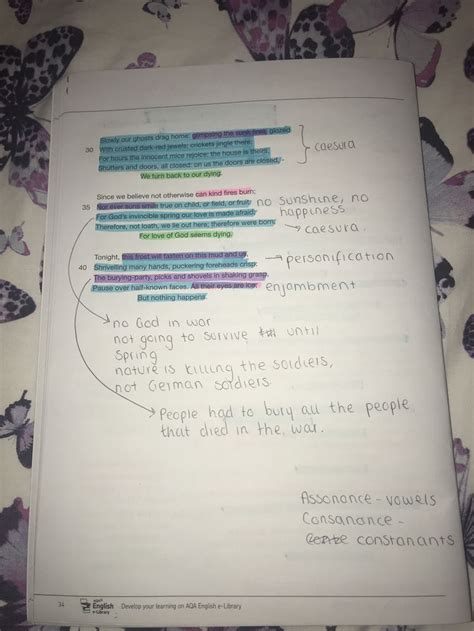 Slowly our ghosts drag home: glimpsing the sunk fires, glozed
30 With crusted dark-red jewels; crickets jingle there;
For hours the innocent mice rejoice: the house is theirs;
Shutters and doors, all closed: on us the doors are closed, –
We turn back to our dying.
caesura
Since we believe not otherwise can kind fires burn;
35 Nor ever suns smile true on child, or field, or fruit.
For God's invincible spring our love is made afraid;
Therefore, not loath, we lie out here; therefore were born,
For love of God seems dying.
no sunshine, no
happiness
caesura.
Tonight, this frost will fasten on this mud and us,
40 Shrivelling many hands, puckering foreheads crisp.
The burying-party, picks and shovels in shaking grasp,
Pause over half-known faces. All their eyes are ice,
But nothing happens.
personification
enjambment
no God in war
not going to survive until
spring
nature is killing the soldiers,
not German soldiers
People had to bury all the people
that died in the war.
Assonance - vowels
Consanance -
constanants
34 aqa English e-Library Develop your learning on AQA English e-Library